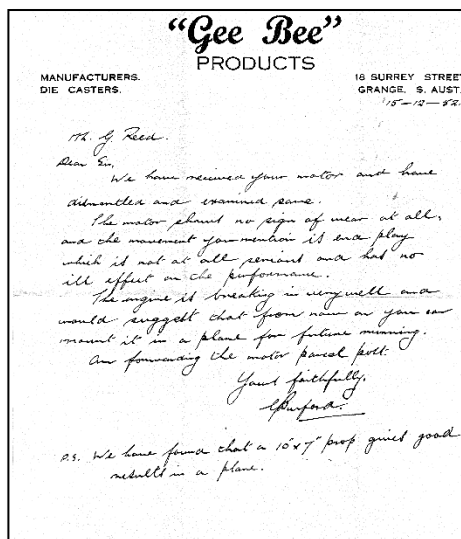 "Gee Bee"
PRODUCTS
MANUFACTURERS.
DIE CASTERS.
18 SURREY STREET
GRANGE, S. AUST.
15-12-52.
Mr. G Reed.
Dear Sir,
We have received your motor and have
dismantled and examined same.
The motor shows no sign of wear at all,
and the movement you mention is end play
which is not at all serious and has no
ill effect on the performance.
The engine is breaking in very well and
would suggest that from now on you can
mount it in a plane for future running.
Am forwarding the motor parcel post.
Yours faithfully,
GBurford.
P.S. We have found that a 10" x 7" prop gives good
results in a plane.